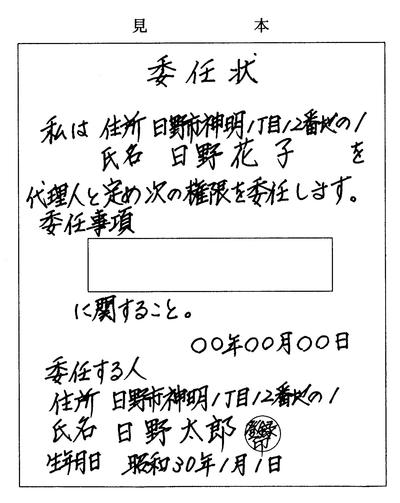 見 本
委任状
私は 住所 日野市神明1丁目12番地の1
氏名 日野花子 を
代理人と定め次の権限を委任します。
委任事項
に関すること。
○○年○○月○○日
委任する人
住所 日野市神明1丁目12番地の1
氏名 日野太郎 登録印
生年月日 昭和30年1月1日